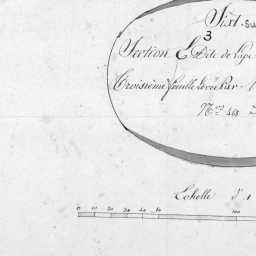 Sixt-su
3
Section C Dite de
Troisième feuille Levée Par
N.os
Echelle d' 1
10 20 30 40 50 100